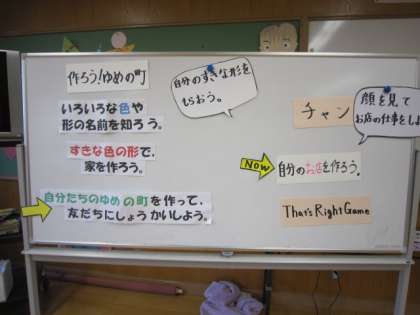 作ろう!ゆめの町
いろいろな色や
形の名前を知ろう。
すきな色の形で、
家を作ろう。
自分たちのゆめの町を作って、
友だちにしょうかいしよう。
自分のすきな形を
しろう。
チャン
顔を見て
お店の仕事をし
Now
自分のお店を作ろう。
That's Right Game